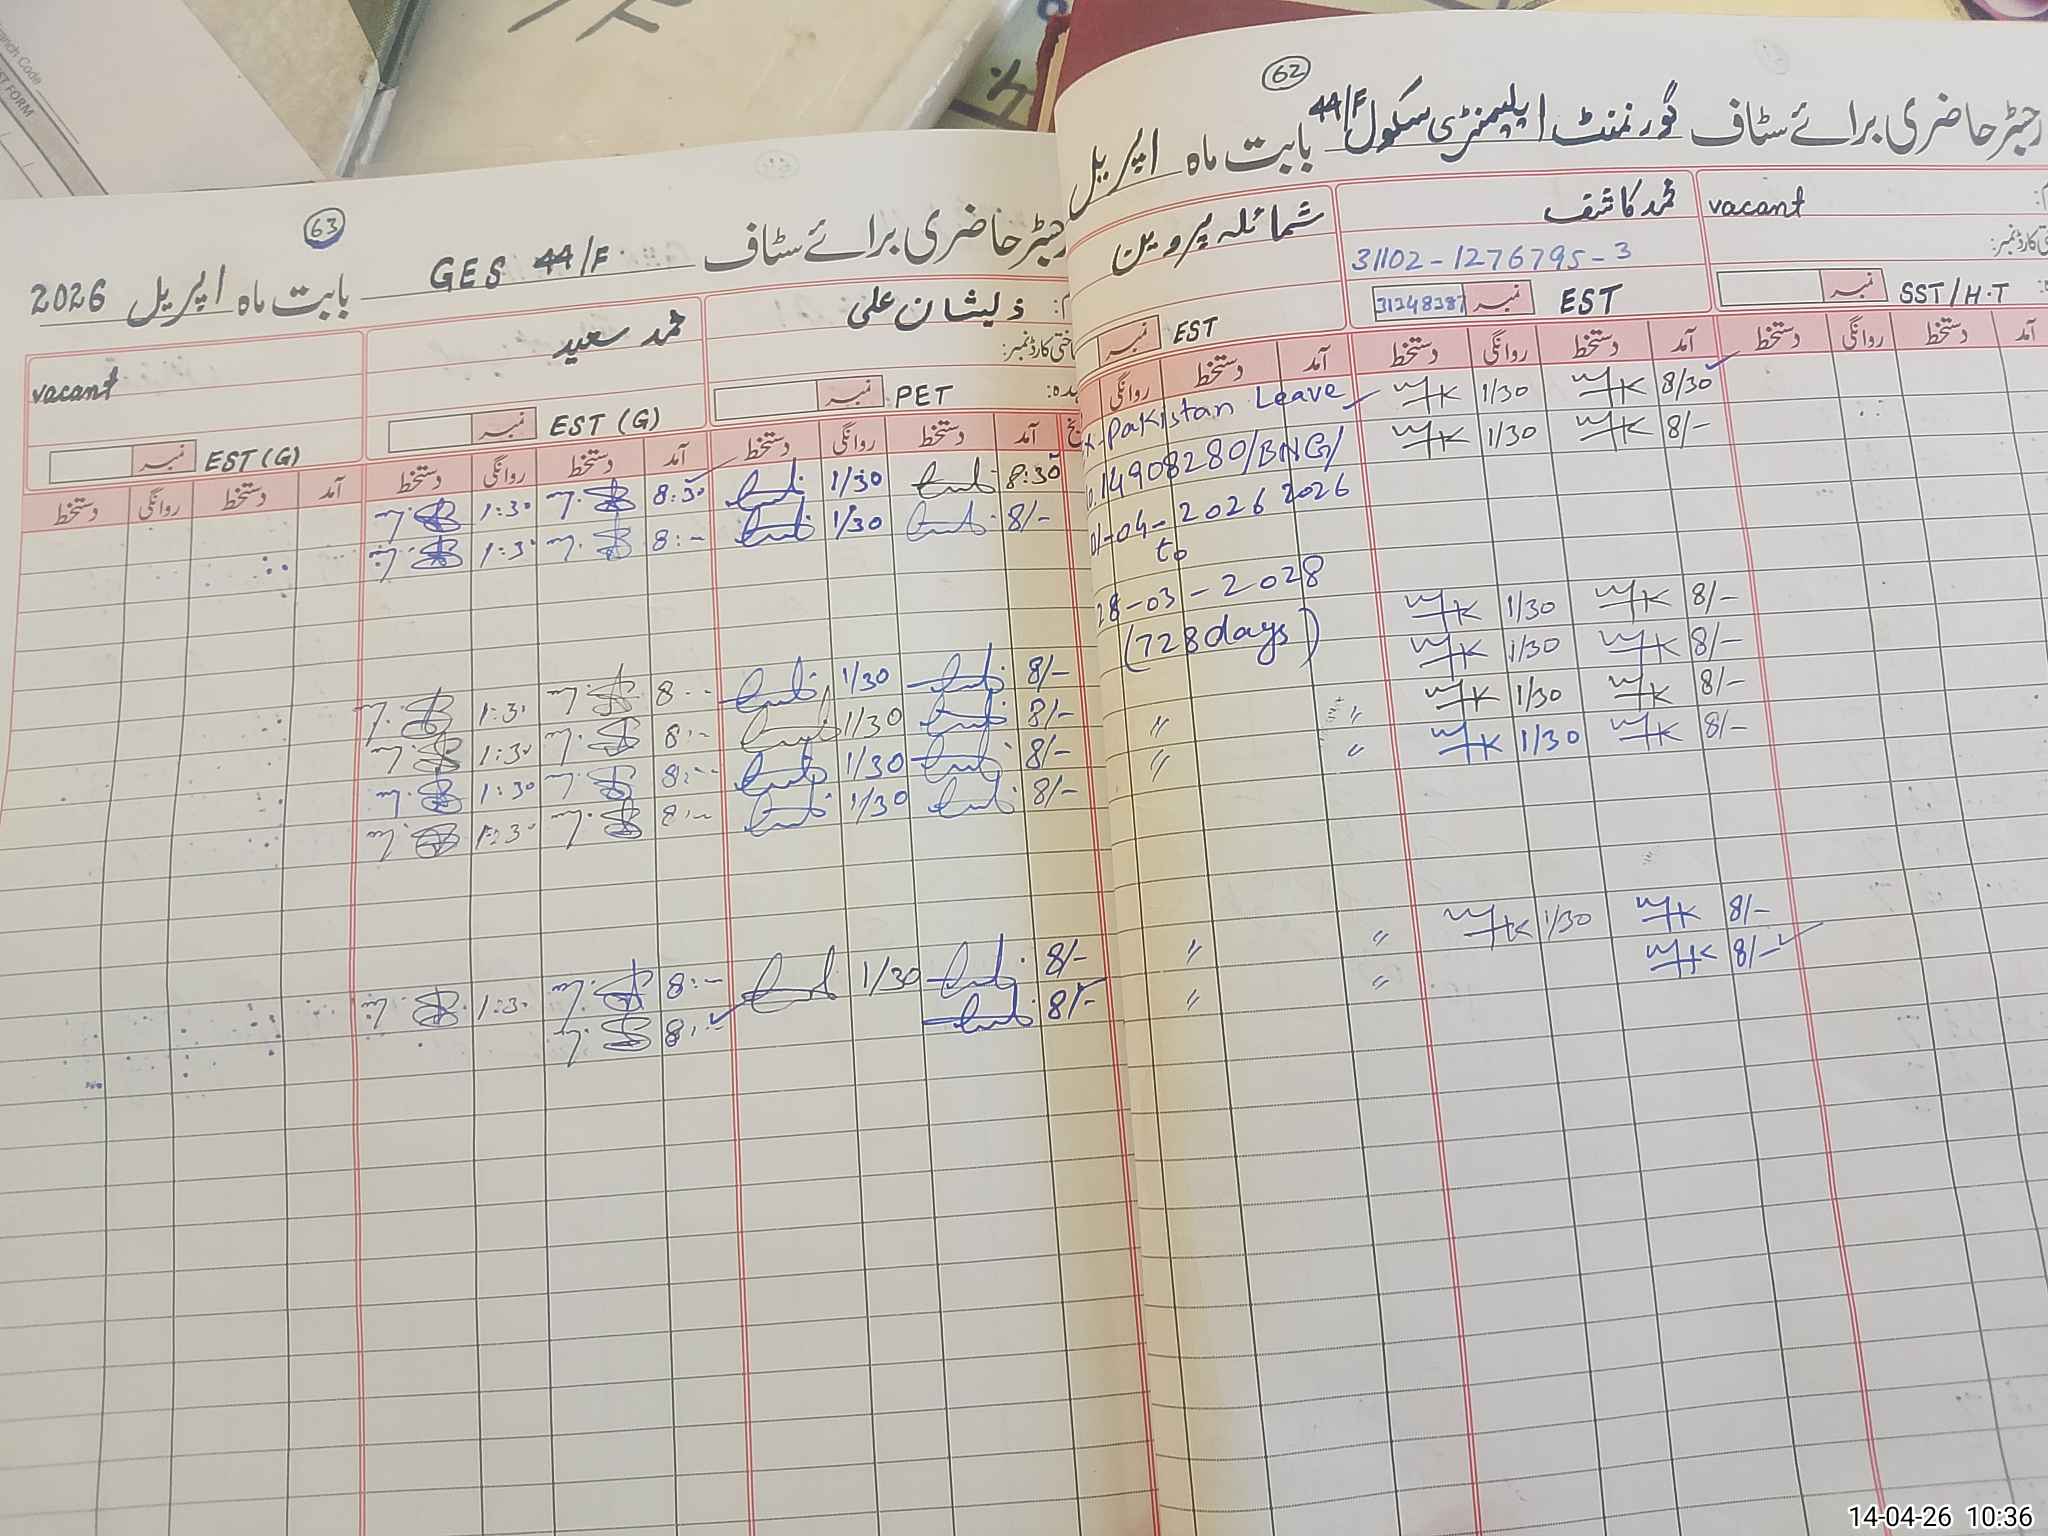 62
رجسٹر حاضری برائے سٹاف گورنمنٹ ایلیمنٹری سکول 44/F بابت ماہ اپریل
vacant
محمد کاشف
شمائلہ پروین
31102-1276795-3
SST/H.T نمبر
EST نمبر 31248287
EST نمبر
آمد دستخط روانگی دستخط
آمد دستخط روانگی دستخط
آمد دستخط روانگی
8/30 1/30
8/- 1/30
8/- 1/30
8/- 1/30
8/- 1/30
8/- 1/30
8/- 1/30
8/-
Pakistan Leave
14908280/BNG/
01-04-2026 2026
to
28-03-2028
(728 days)
〃 〃
〃 〃
〃 〃
〃 〃
63
رجسٹر حاضری برائے سٹاف GES 44/F بابت ماہ اپریل 2026
ذیشان علی
محمد سعید
vacant
PET نمبر
EST (G) نمبر
EST (G) نمبر
آمد دستخط روانگی دستخط
آمد دستخط روانگی دستخط
آمد دستخط روانگی دستخط
8:30 1/30 8:30 1:30
8/- 1/30 8:- 1:30
8/- 1/30 8:- 1:30
8/- 1/30 8:- 1:30
8/- 1/30 8:- 1:30
8/- 1/30 8:- 1:30
8/- 1/30 8:- 1:30
8/- 8:-
14-04-26 10:36